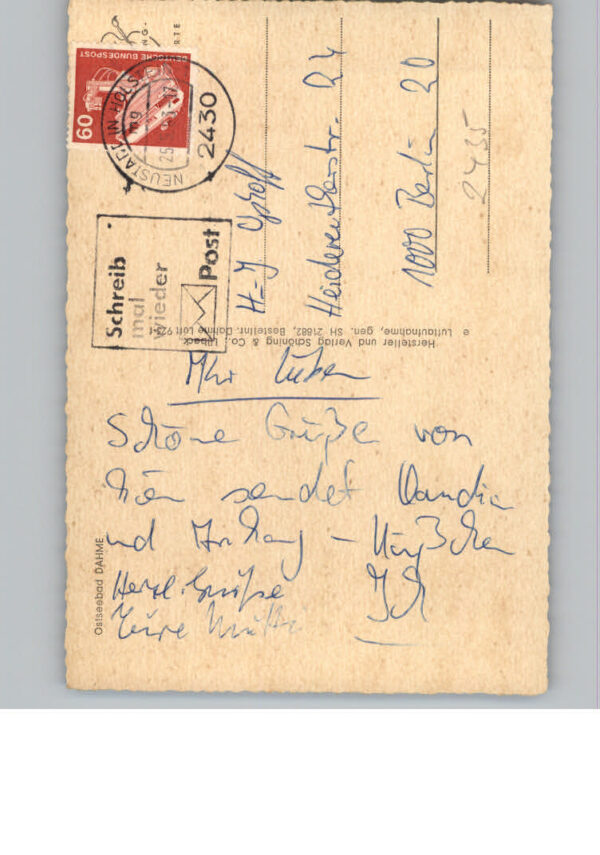 DEUTSCHE BUNDESPOST
60
NEUSTADT IN HOLST
2430
Schreib
mal
wieder
Post
H-J
Heiderenterstr. 24
1000 Berlin 20
2435
Hersteller und Verlag Schöning & Co., Lübeck
Luftaufnahme, gen. SH 21682, Bestellnr. Dahme
Ihr Lieben
Schöne Grüße von
hier sendet Claudia
und Anhang – Küßchen
Herzl. Grüße Ich
Eure Mutti
Ostseebad DAHME